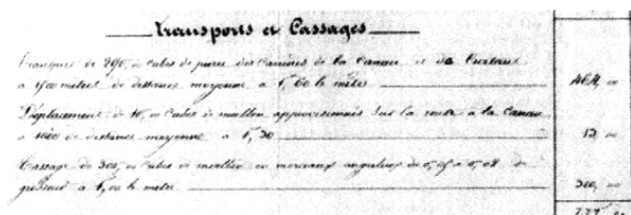 Transports et Cassages
Transport de 290, m cubes de pierre des Carrières de la Canau et de
à 1500 mètres de distance moyenne à 1,60 le mètre 464, 00
Déplacement de 10, m cubes de moellon approvisionnés sur la route à la Canau
à 1000 de distance moyenne à 1,30 13, 00
Cassage de 300, m cubes de moellon en morceaux anguleux de 0,05 à 0,08 de
grosseur à 1,00 le mètre 300, 00
777